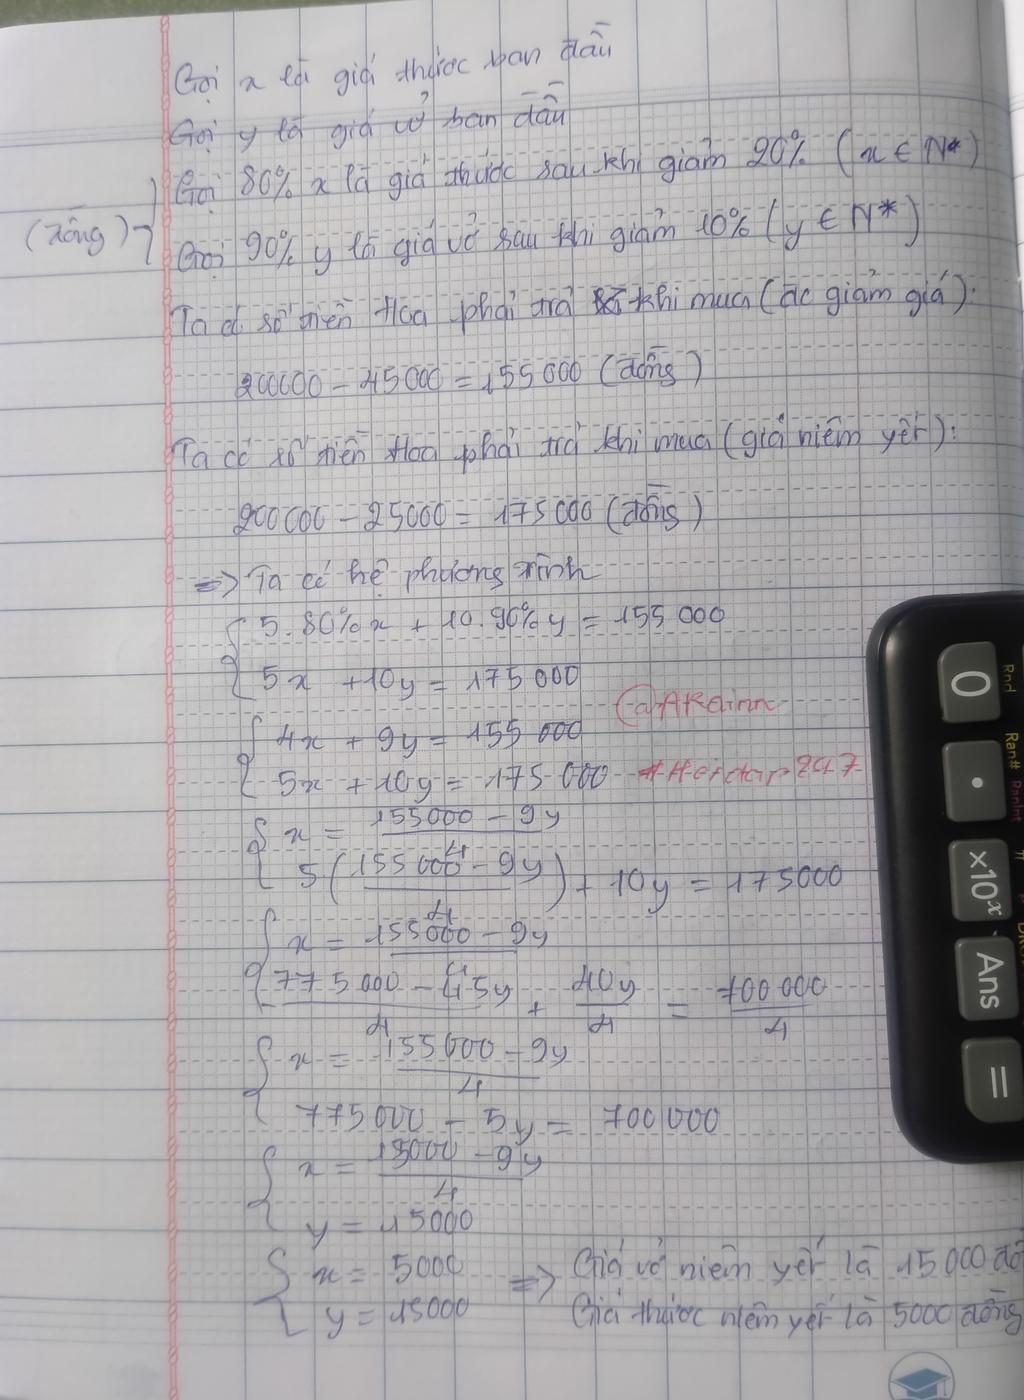 Gọi x là giá thước ban đầu
Gọi y là giá vở ban đầu
Gọi 80% x là giá thước sau khi giảm 20% (x ∈ N*)
(đồng)
Gọi 90% y là giá vở sau khi giảm 10% (y ∈ N*)
Ta có số tiền Hoa phải trả khi mua (đc giảm giá):
200000 - 45000 = 155000 (đồng)
Ta có số tiền Hoa phải trả khi mua (giá niêm yết):
200000 - 25000 = 175000 (đồng)
=> Ta có hệ phương trình
{ 5.80%x + 10.90%y = 155 000
5x + 10y = 175 000
@ARdinn
{ 4x + 9y = 155 000
5x + 10y = 175 000
{ x = (155000 - 9y)/4
5((155 000 - 9y)/4) + 10y = 175000
{ x = (155000 - 9y)/4
(775 000 - 45y)/4 + 40y/4 = 700 000/4
{ x = (155000 - 9y)/4
775000 - 5y = 700000
{ x = (15000 - 9y)/4
y = 15000
{ x = 5000 => Giá vở niêm yết là 15000 đồ
y = 15000 Giá thước niêm yết là 5000 đồng
0
Rnd
.
Ran#
RanInt
x10ˣ
Ans
=